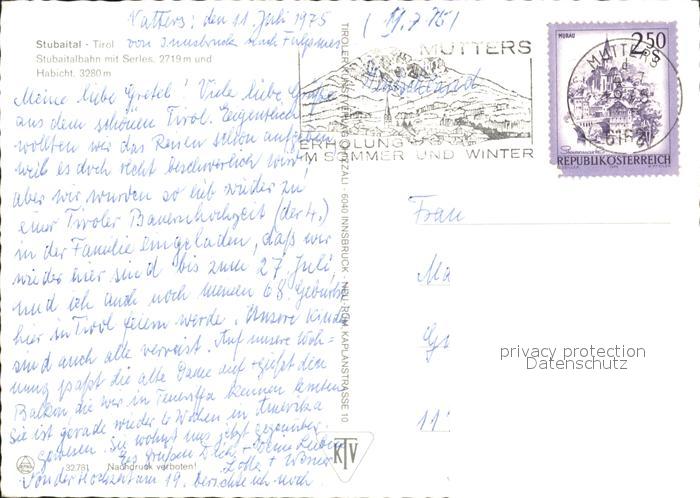 Natters, den 11. Juli 1975
(11.7.75)
Stubaital - Tirol
von Innsbruck nach Fulpmes
Stubaitalbahn mit Serles, 2719 m und
Habicht, 3280 m
Meine liebe Gretel! Viele liebe Grüße
aus dem schönen Tirol. Eigentlich
wollten wir das Reisen schon aufgeben
weil es doch recht beschwerlich wird
aber wir wurden so lieb wieder zu
einer Tiroler Bauernhochzeit (der 4.)
in der Familie eingeladen, daß wir
wieder hier sind bis zum 27. Juli,
und ich auch noch meinen 68. Geburtst.
hier in Tirol feiern werde. Unsere Kinder
sind auch alle verreist. Auf unsere Woh=
nung paßt die alte Dame auf + gießt den
Balkon, die wir in Teneriffa kennen lernten
Sie ist gerade wieder 6 Wochen in Amerika
gewesen. Sie wohnt uns jetzt gegenüber.
Es grüßen Dich, Deine Lieben
Lotte + Werner
Von der Hochzeit am 19. berichte ich noch.
32.781 Nachdruck verboten!
TIROLER KUNSTVERLAG CHIZZALI · 6040 INNSBRUCK - NEU-RUM, KAPLANSTRASSE 10
KTV
MUTTERS
ERHOLUNG
IM SOMMER UND WINTER
MURAU
2,50
REPUBLIK ÖSTERREICH
MUTTERS
6162
Frau
Ma
11
privacy protection
Datenschutz